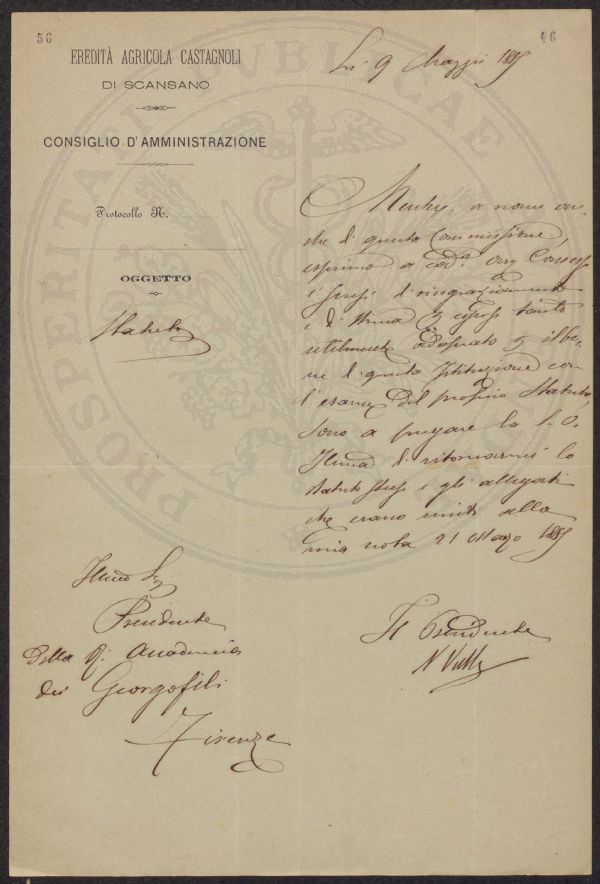 56
46
EREDITÀ AGRICOLA CASTAGNOLI
DI SCANSANO
CONSIGLIO D'AMMINISTRAZIONE
Protocollo N.
OGGETTO
Statuto
Li 9 Maggio 1885
Mentre, a nome an-
che di questa Commissione,
esprimo a cod.a On. Consesso
i sensi di ringraziamento
e di stima per essersi tanto
utilmente adoperato per il be-
ne di questa Istituzione con
l'esame del proprio Statuto,
sono a pregare la S. V.
Illma di ritornarmi lo
Statuto stesso e gli allegati
che erano uniti alla
mia nota 21 Marzo 1885
Il Presidente
Illmo Sig
Presidente
della R. Accademia
dei Georgofili
Firenze
PROSPERITATI PUBLICAE